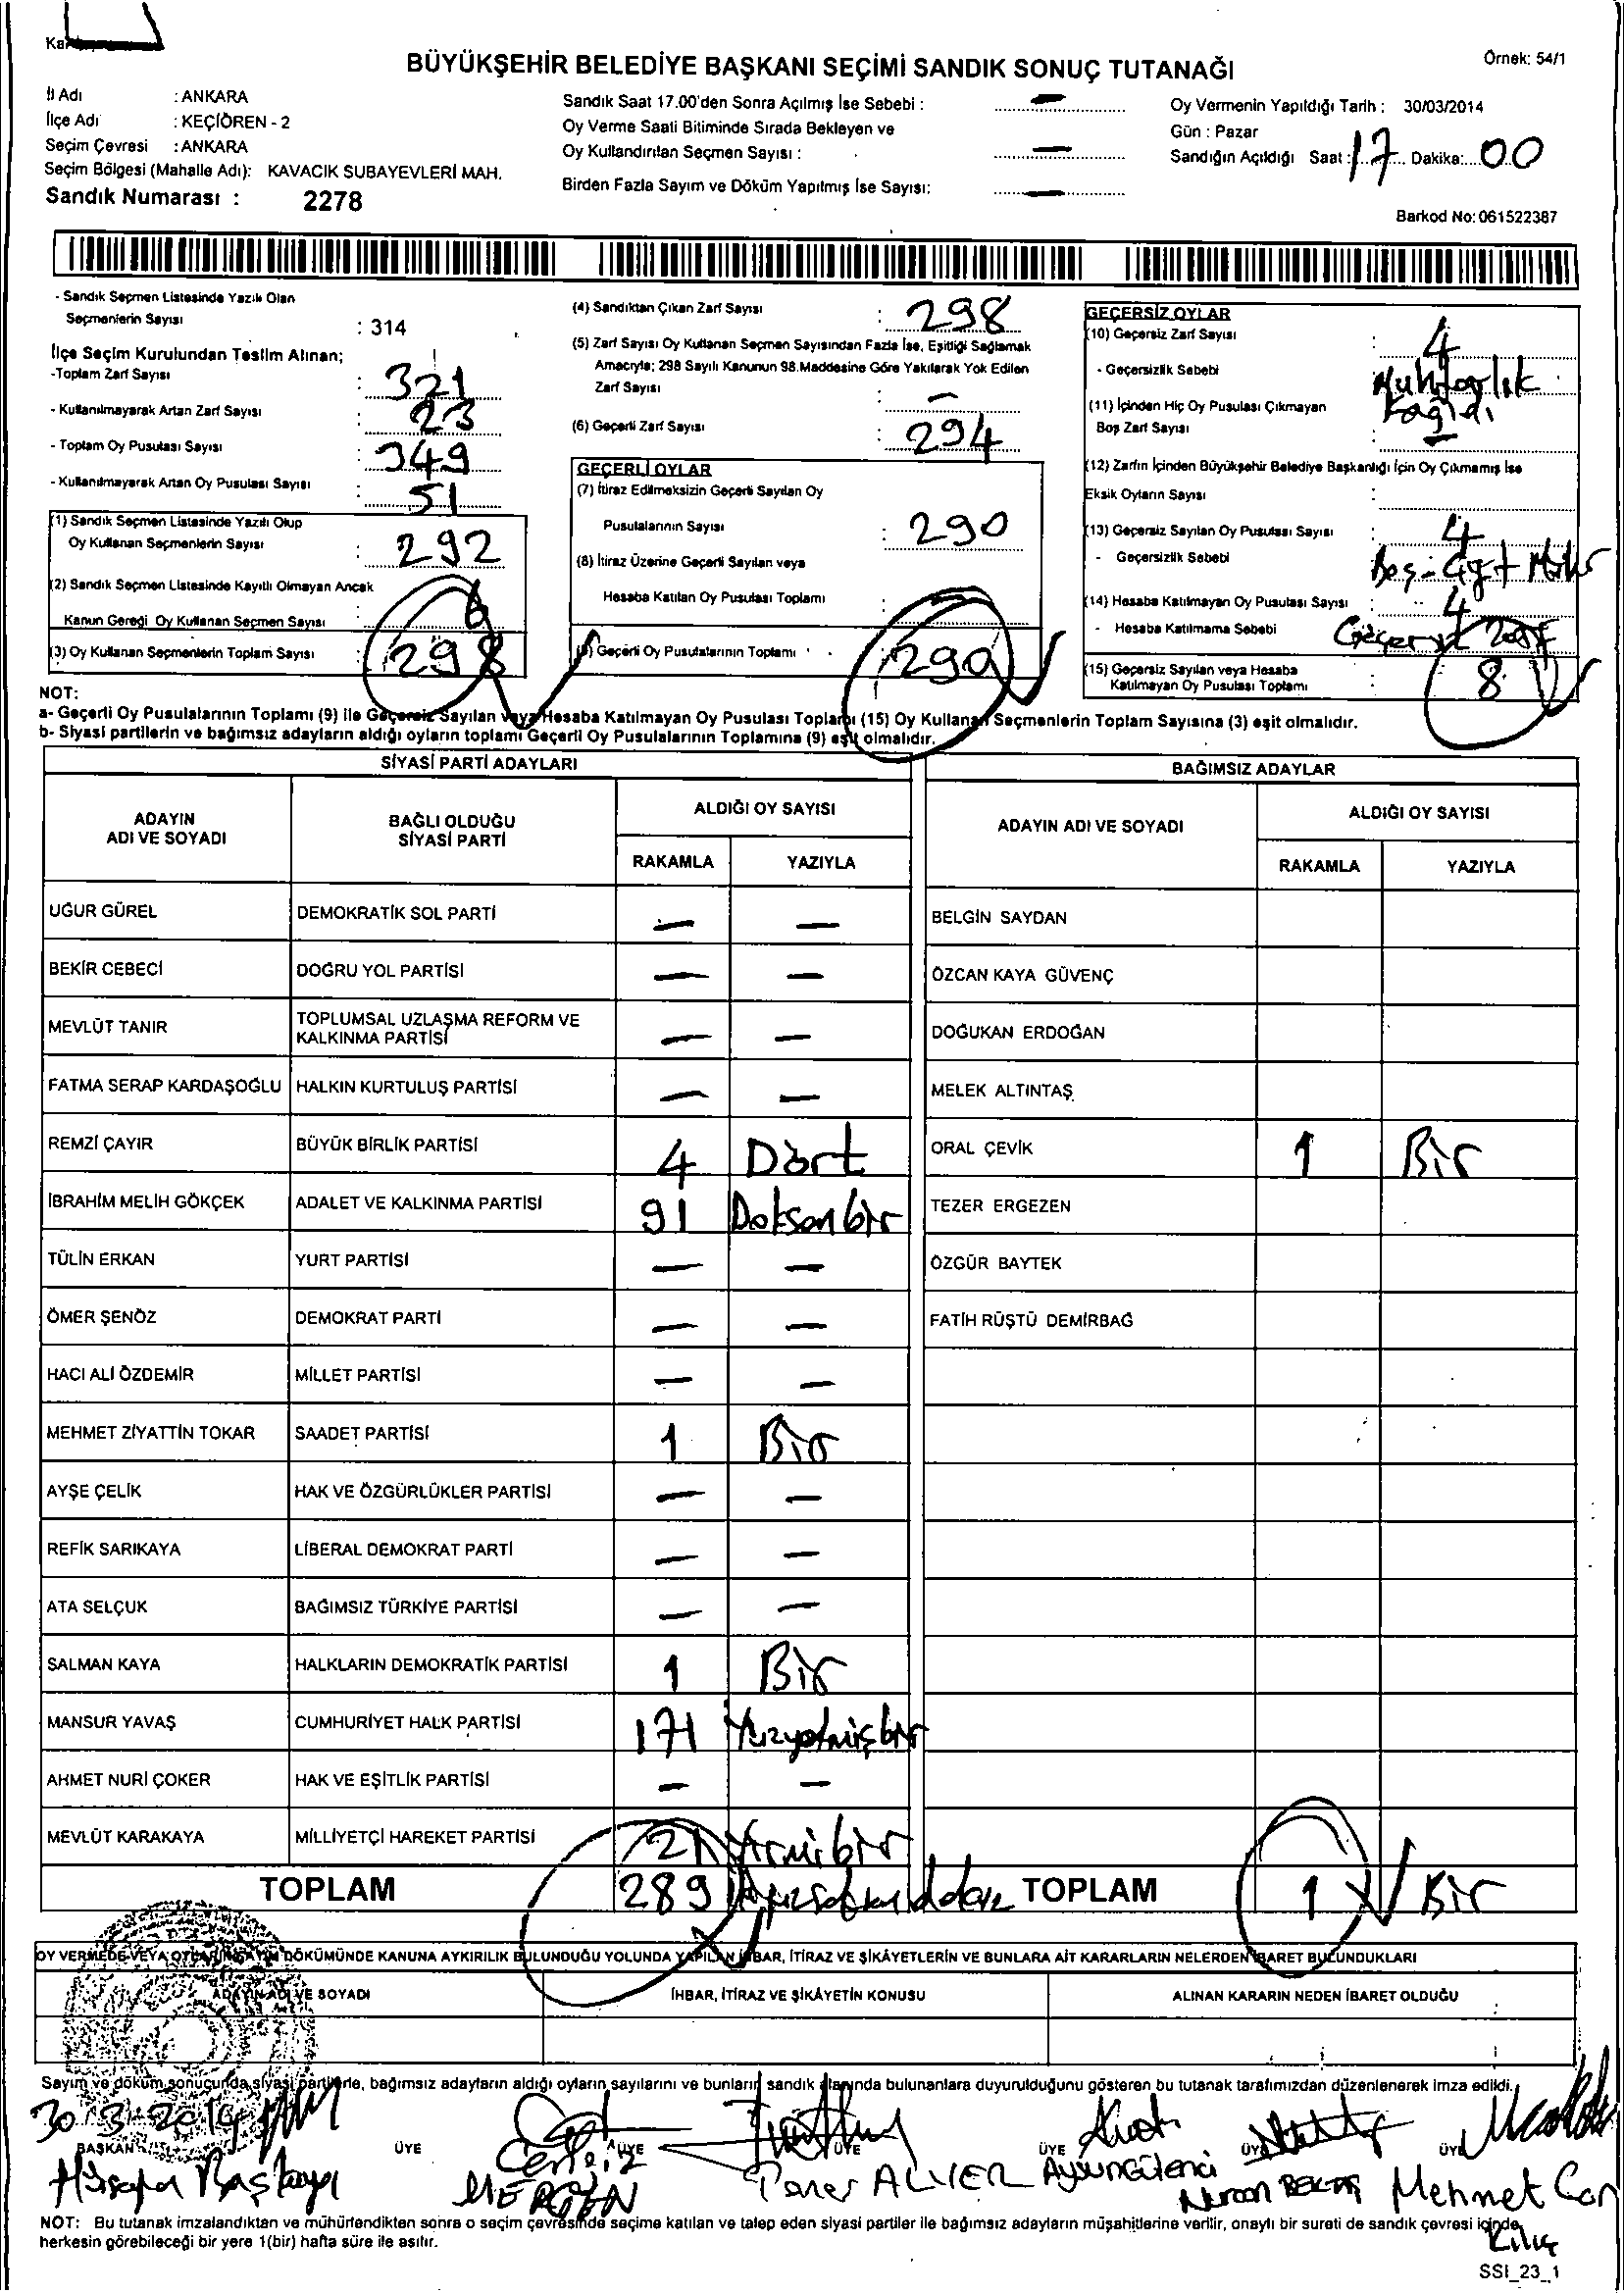 BÜYÜKŞEHİR BELEDİYE BAŞKANI SEÇİMİ SANDIK SONUÇ TUTANAĞI
Örnek: 54/1
İl Adı : ANKARA
İlçe Adı : KEÇİÖREN - 2
Seçim Çevresi : ANKARA
Seçim Bölgesi (Mahalle Adı): KAVACIK SUBAYEVLERİ MAH.
Sandık Numarası : 2278
Sandık Saat 17.00'den Sonra Açılmış İse Sebebi : —
Oy Verme Saati Bitiminde Sırada Bekleyen ve
Oy Kullandırılan Seçmen Sayısı : —
Birden Fazla Sayım ve Döküm Yapılmış İse Sayısı: —
Oy Vermenin Yapıldığı Tarih : 30/03/2014
Gün : Pazar
Sandığın Açıldığı Saat : 17 Dakika: 00
Barkod No: 061522387
- Sandık Seçmen Listesinde Yazılı Olan
Seçmenlerin Sayısı : 314
İlçe Seçim Kurulundan Teslim Alınan;
-Toplam Zarf Sayısı : 321
- Kullanılmayarak Artan Zarf Sayısı : 23
- Toplam Oy Pusulası Sayısı : 349
- Kullanılmayarak Artan Oy Pusulası Sayısı : 51
(1) Sandık Seçmen Listesinde Yazılı Olup
Oy Kullanan Seçmenlerin Sayısı : 292
(2) Sandık Seçmen Listesinde Kayıtlı Olmayan Ancak
Kanun Gereği Oy Kullanan Seçmen Sayısı : 6
(3) Oy Kullanan Seçmenlerin Toplam Sayısı : 298
(4) Sandıktan Çıkan Zarf Sayısı : 298
(5) Zarf Sayısı Oy Kullanan Seçmen Sayısından Fazla İse, Eşitliği Sağlamak
Amacıyla; 298 Sayılı Kanunun 98.Maddesine Göre Yakılarak Yok Edilen
Zarf Sayısı : —
(6) Geçerli Zarf Sayısı : 294
GEÇERLİ OYLAR
(7) İtiraz Edilmeksizin Geçerli Sayılan Oy
Pusulalarının Sayısı : 290
(8) İtiraz Üzerine Geçerli Sayılan veya
Hesaba Katılan Oy Pusulası Toplamı :
(9) Geçerli Oy Pusulalarının Toplamı : 290
GEÇERSİZ OYLAR
(10) Geçersiz Zarf Sayısı : 4
- Geçersizlik Sebebi : Muhtarlık Kağıdı
(11) İçinden Hiç Oy Pusulası Çıkmayan
Boş Zarf Sayısı : —
(12) Zarfın İçinden Büyükşehir Belediye Başkanlığı İçin Oy Çıkmamış İse
Eksik Oyların Sayısı :
(13) Geçersiz Sayılan Oy Pusulası Sayısı : 4
- Geçersizlik Sebebi : Boş-Çift Mühür
(14) Hesaba Katılmayan Oy Pusulası Sayısı : 4
- Hesaba Katılmama Sebebi Geçersiz Zarf
(15) Geçersiz Sayılan veya Hesaba
Katılmayan Oy Pusulası Toplamı : 8
NOT:
a- Geçerli Oy Pusulalarının Toplamı (9) ile Geçersiz Sayılan veya Hesaba Katılmayan Oy Pusulası Toplamı (15) Oy Kullanan Seçmenlerin Toplam Sayısına (3) eşit olmalıdır.
b- Siyasi partilerin ve bağımsız adayların aldığı oyların toplamı Geçerli Oy Pusulalarının Toplamına (9) eşit olmalıdır.
SİYASİ PARTİ ADAYLARI
ADAYIN ADI VE SOYADI BAĞLI OLDUĞU SİYASİ PARTİ ALDIĞI OY SAYISI
RAKAMLA YAZIYLA
UĞUR GÜREL DEMOKRATİK SOL PARTİ — —
BEKİR CEBECİ DOĞRU YOL PARTİSİ — —
MEVLÜT TANIR TOPLUMSAL UZLAŞMA REFORM VE KALKINMA PARTİSİ — —
FATMA SERAP KARDAŞOĞLU HALKIN KURTULUŞ PARTİSİ — —
REMZİ ÇAYIR BÜYÜK BİRLİK PARTİSİ 4 Dört
İBRAHİM MELİH GÖKÇEK ADALET VE KALKINMA PARTİSİ 91 Doksanbir
TÜLİN ERKAN YURT PARTİSİ — —
ÖMER ŞENÖZ DEMOKRAT PARTİ — —
HACI ALİ ÖZDEMİR MİLLET PARTİSİ — —
MEHMET ZİYATTİN TOKAR SAADET PARTİSİ 1 Bir
AYŞE ÇELİK HAK VE ÖZGÜRLÜKLER PARTİSİ — —
REFİK SARIKAYA LİBERAL DEMOKRAT PARTİ — —
ATA SELÇUK BAĞIMSIZ TÜRKİYE PARTİSİ — —
SALMAN KAYA HALKLARIN DEMOKRATİK PARTİSİ 1 Bir
MANSUR YAVAŞ CUMHURİYET HALK PARTİSİ 171 Yüzyetmişbir
AHMET NURİ ÇOKER HAK VE EŞİTLİK PARTİSİ — —
MEVLÜT KARAKAYA MİLLİYETÇİ HAREKET PARTİSİ 21 Yirmibir
TOPLAM 289
BAĞIMSIZ ADAYLAR
ADAYIN ADI VE SOYADI ALDIĞI OY SAYISI
RAKAMLA YAZIYLA
BELGİN SAYDAN
ÖZCAN KAYA GÜVENÇ
DOĞUKAN ERDOĞAN
MELEK ALTINTAŞ
ORAL ÇEVİK 1 Bir
TEZER ERGEZEN
ÖZGÜR BAYTEK
FATİH RÜŞTÜ DEMİRBAĞ
TOPLAM 1 Bir
OY VERMEDE VEYA OYLARIN SAYIM DÖKÜMÜNDE KANUNA AYKIRILIK BULUNDUĞU YOLUNDA YAPILAN İHBAR, İTİRAZ VE ŞİKÂYETLERİN VE BUNLARA AİT KARARLARIN NELERDEN İBARET BULUNDUKLARI
ADAYIN ADI VE SOYADI İHBAR, İTİRAZ VE ŞİKÂYETİN KONUSU ALINAN KARARIN NEDEN İBARET OLDUĞU
Sayım ve döküm sonucunda siyasi partilerle, bağımsız adayların aldığı oyların sayılarını ve bunların sandık alanında bulunanlara duyurulduğunu gösteren bu tutanak tarafımızdan düzenlenerek imza edildi.
30/3/2014
BAŞKAN ÜYE ÜYE ÜYE ÜYE ÜYE ÜYE
MERGEN Taner Nurcan Mehmet Can Kılıç
NOT: Bu tutanak imzalandıktan ve mühürlendikten sonra o seçim çevresinde seçime katılan ve talep eden siyasi partiler ile bağımsız adayların müşahitlerine verilir, onaylı bir sureti de sandık çevresi içinde
herkesin görebileceği bir yere 1(bir) hafta süre ile asılır.
SSI_23_1